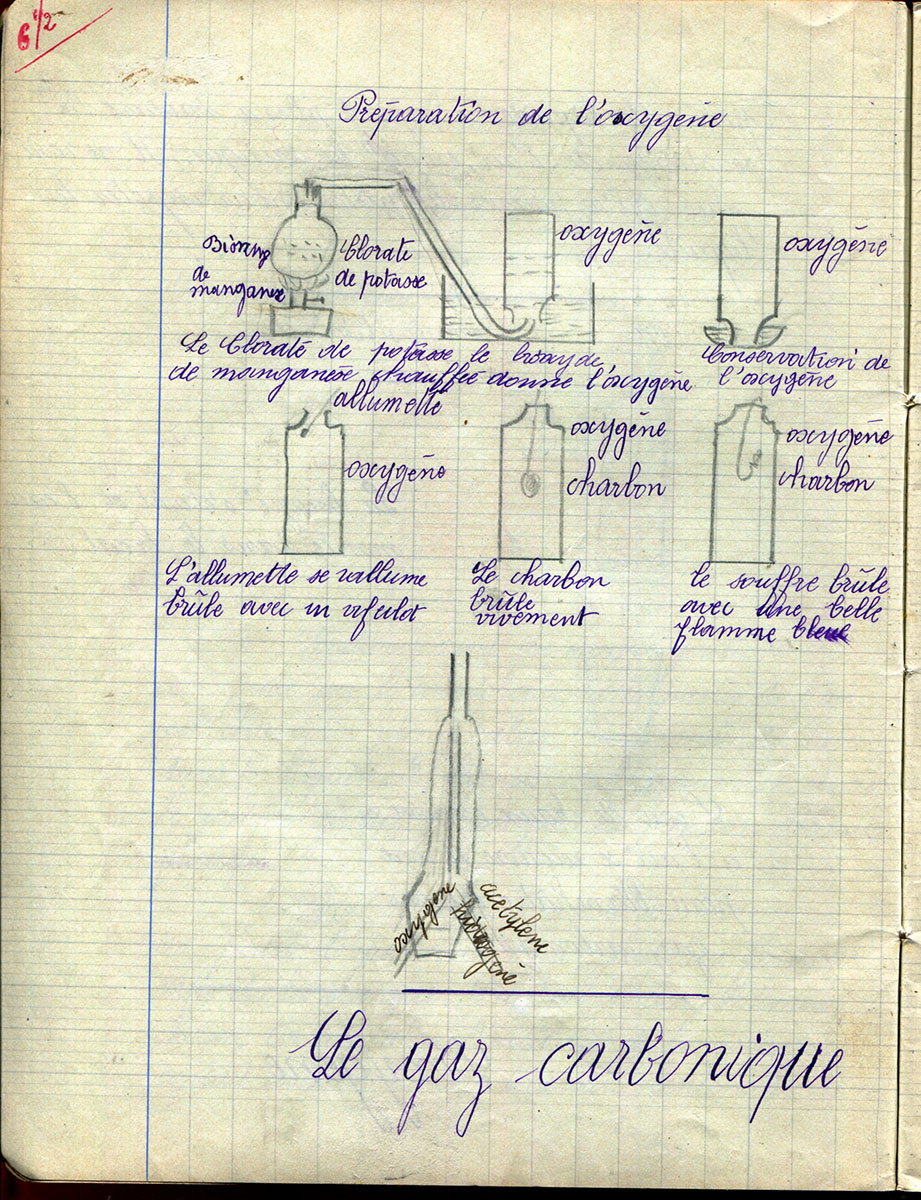 6 1/2
Préparation de l'oxygène
oxygène
oxygène
Bioxyde
de
manganèse
Clorate
de potasse
Le Clorate de potasse le bioxyde
de manganèse chauffée donne l'oxygène
Conservation de
l'oxygène
allumette
oxygène
oxygène
charbon
oxygène
charbon
L'allumette se rallume
brûle avec un
Le charbon
brûle
vivement
le souffre brûle
avec une belle
flamme bleue
oxygène
acetylene
Le gaz carbonique